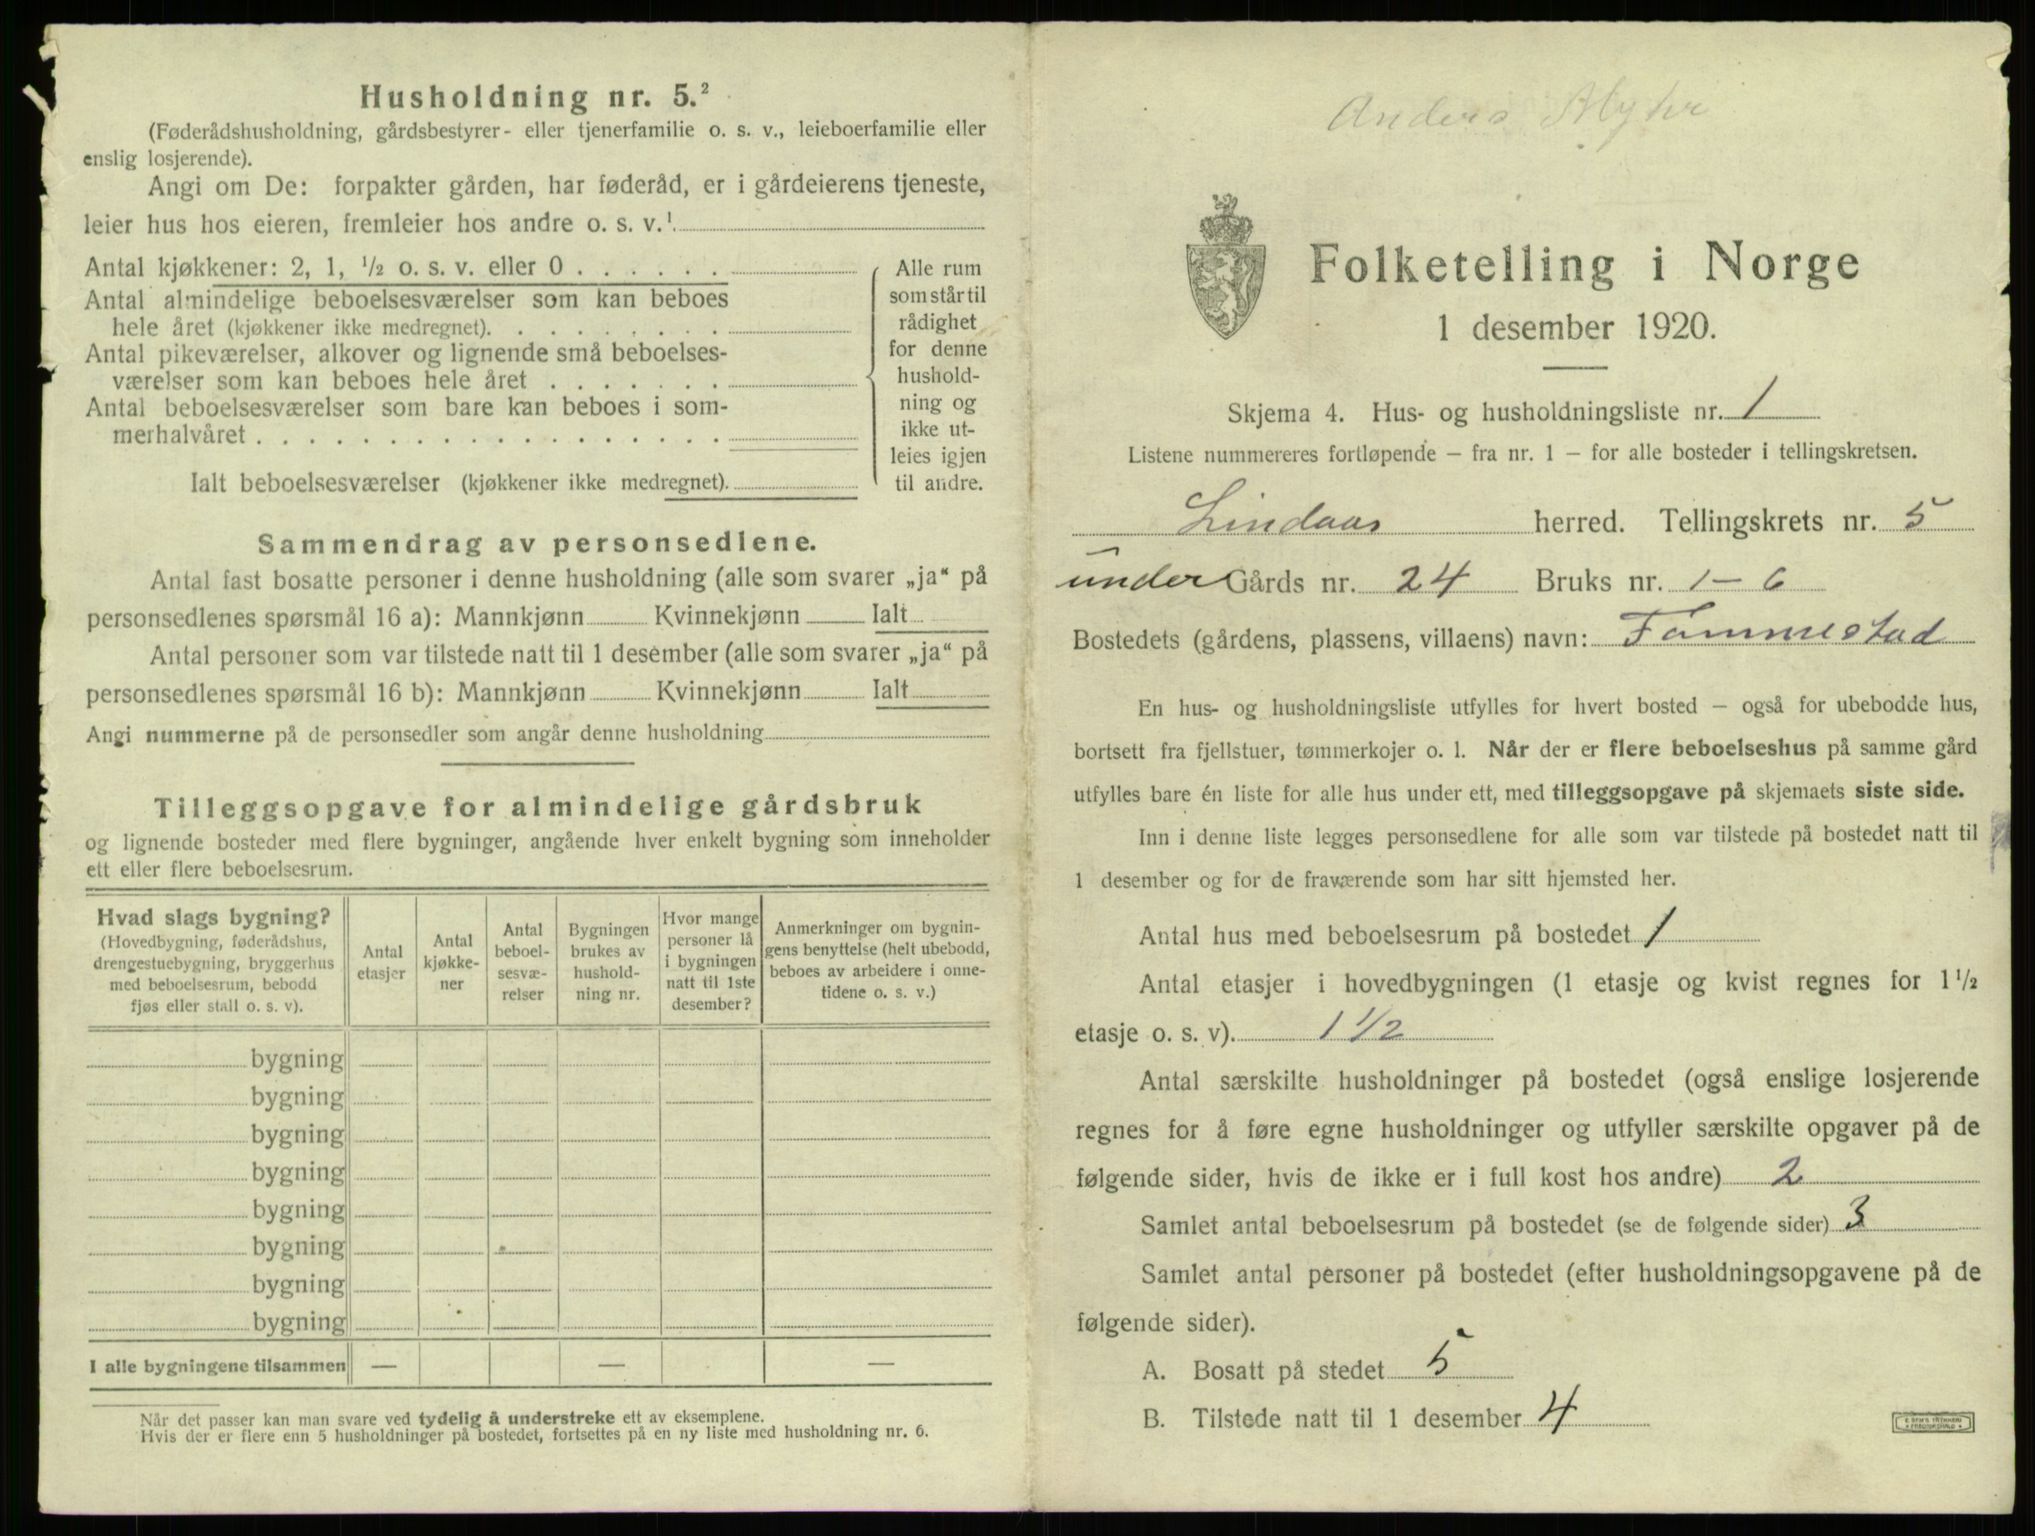 Husholdning nr. 5.²
(Føderådshusholdning, gårdsbestyrer- eller tjenerfamilie o. s. v., leieboerfamilie eller
enslig losjerende).
Angi om De: forpakter gården, har føderåd, er i gårdeierens tjeneste,
leier hus hos eieren, fremleier hos andre o. s. v.¹
Antal kjøkkener: 2, 1, ½ o. s. v. eller 0 . . . . . .
Antal almindelige beboelsesværelser som kan beboes
hele året (kjøkkener ikke medregnet). . . . . . . . .
Antal pikeværelser, alkover og lignende små beboelses-
værelser som kan beboes hele året . . . . . . .
Antal beboelsesværelser som bare kan beboes i som-
merhalvåret . . . . . . . . . . . . . . . . . .
Ialt beboelsesværelser (kjøkkener ikke medregnet).
Alle rum
som står til
rådighet
for denne
hushold-
ning og
ikke ut-
leies igjen
til andre.
Sammendrag av personsedlene.
Antal fast bosatte personer i denne husholdning (alle som svarer „ja“ på
personsedlenes spørsmål 16 a): Mannkjønn Kvinnekjønn Ialt
Antal personer som var tilstede natt til 1 desember (alle som svarer „ja“ på
personsedlenes spørsmål 16 b): Mannkjønn Kvinnekjønn Ialt
Angi nummerne på de personsedler som angår denne husholdning
Tilleggsopgave for almindelige gårdsbruk
og lignende bosteder med flere bygninger, angående hver enkelt bygning som inneholder
ett eller flere beboelsesrum.
Hvad slags bygning?
(Hovedbygning, føderådshus,
drengestuebygning, bryggerhus
med beboelsesrum, bebodd
fjøs eller stall o. s. v).
Antal
etasjer
Antal
kjøkke-
ner
Antal
beboel-
sesvæ-
relser
Bygningen
brukes av
hushold-
ning nr.
Hvor mange
personer lå
i bygningen
natt til 1ste
desember?
Anmerkninger om bygnin-
gens benyttelse (helt ubebodd,
beboes av arbeidere i onne-
tidene o. s. v.)
bygning
bygning
bygning
bygning
bygning
bygning
bygning
bygning
I alle bygningene tilsammen — — —
Når det passer kan man svare ved tydelig å understreke ett av eksemplene.
Hvis der er flere enn 5 husholdninger på bostedet, fortsettes på en ny liste med husholdning nr. 6.
Anders Myhr
Folketelling i Norge
1 desember 1920.
Skjema 4. Hus- og husholdningsliste nr. 1
Listene nummereres fortløpende – fra nr. 1 – for alle bosteder i tellingskretsen.
Lindaas herred. Tellingskrets nr. 5
under Gårds nr. 24 Bruks nr. 1–6
Bostedets (gårdens, plassens, villaens) navn: Fammestad
En hus- og husholdningsliste utfylles for hvert bosted – også for ubebodde hus,
bortsett fra fjellstuer, tømmerkojer o. l. Når der er flere beboelseshus på samme gård
utfylles bare én liste for alle hus under ett, med tilleggsopgave på skjemaets siste side.
Inn i denne liste legges personsedlene for alle som var tilstede på bostedet natt til
1 desember og for de fraværende som har sitt hjemsted her.
Antal hus med beboelsesrum på bostedet 1
Antal etasjer i hovedbygningen (1 etasje og kvist regnes for 1½
etasje o. s. v). 1½
Antal særskilte husholdninger på bostedet (også enslige losjerende
regnes for å føre egne husholdninger og utfyller særskilte opgaver på de
følgende sider, hvis de ikke er i full kost hos andre) 2
Samlet antal beboelsesrum på bostedet (se de følgende sider) 3
Samlet antal personer på bostedet (efter husholdningsopgavene på de
følgende sider).
A. Bosatt på stedet 5
B. Tilstede natt til 1 desember 4